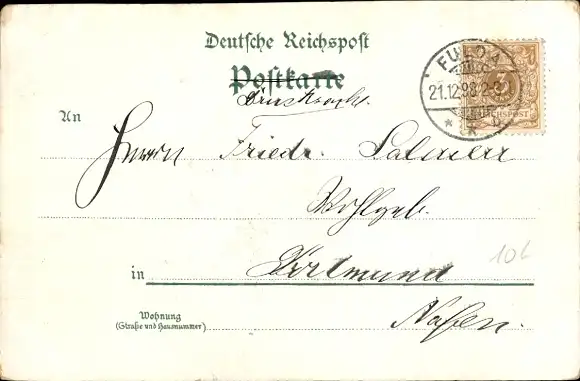 Deutsche Reichspost
Postkarte
Drucksache.
FULDA
21.12.98.2-3
3
REICHSPOST
An
Herrn Friedr.
Wohlgeb.
in Dortmund
Wohnung
(Straße und Hausnummer)
Hafen.
10L